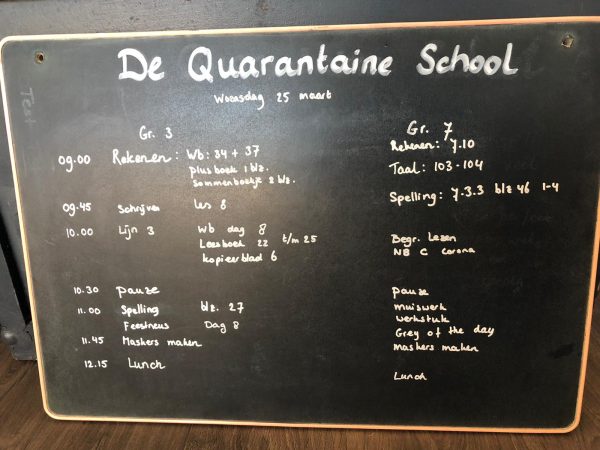 De Quarantaine School
Woensdag 25 maart
Test
Gr. 3
09.00 Rekenen: Wb: 34 + 37
plusboek 1 blz.
Sommenboekje 2 blz.
09.45 Schrijven les 8
10.00 Lijn 3 Wb dag 8
Leesboek 22 t/m 25
kopieerblad 6
10.30 pauze
11.00 Spelling blz. 27
Feestneus Dag 8
11.45 Maskers maken
12.15 Lunch
Gr. 7
Rekenen: 7.10
Taal: 103-104
Spelling: 7.3.3 blz 46 1-4
Begr. Lezen
NB C Corona
pauze
muiswerk
werkstuk
Grey of the day
maskers maken
Lunch